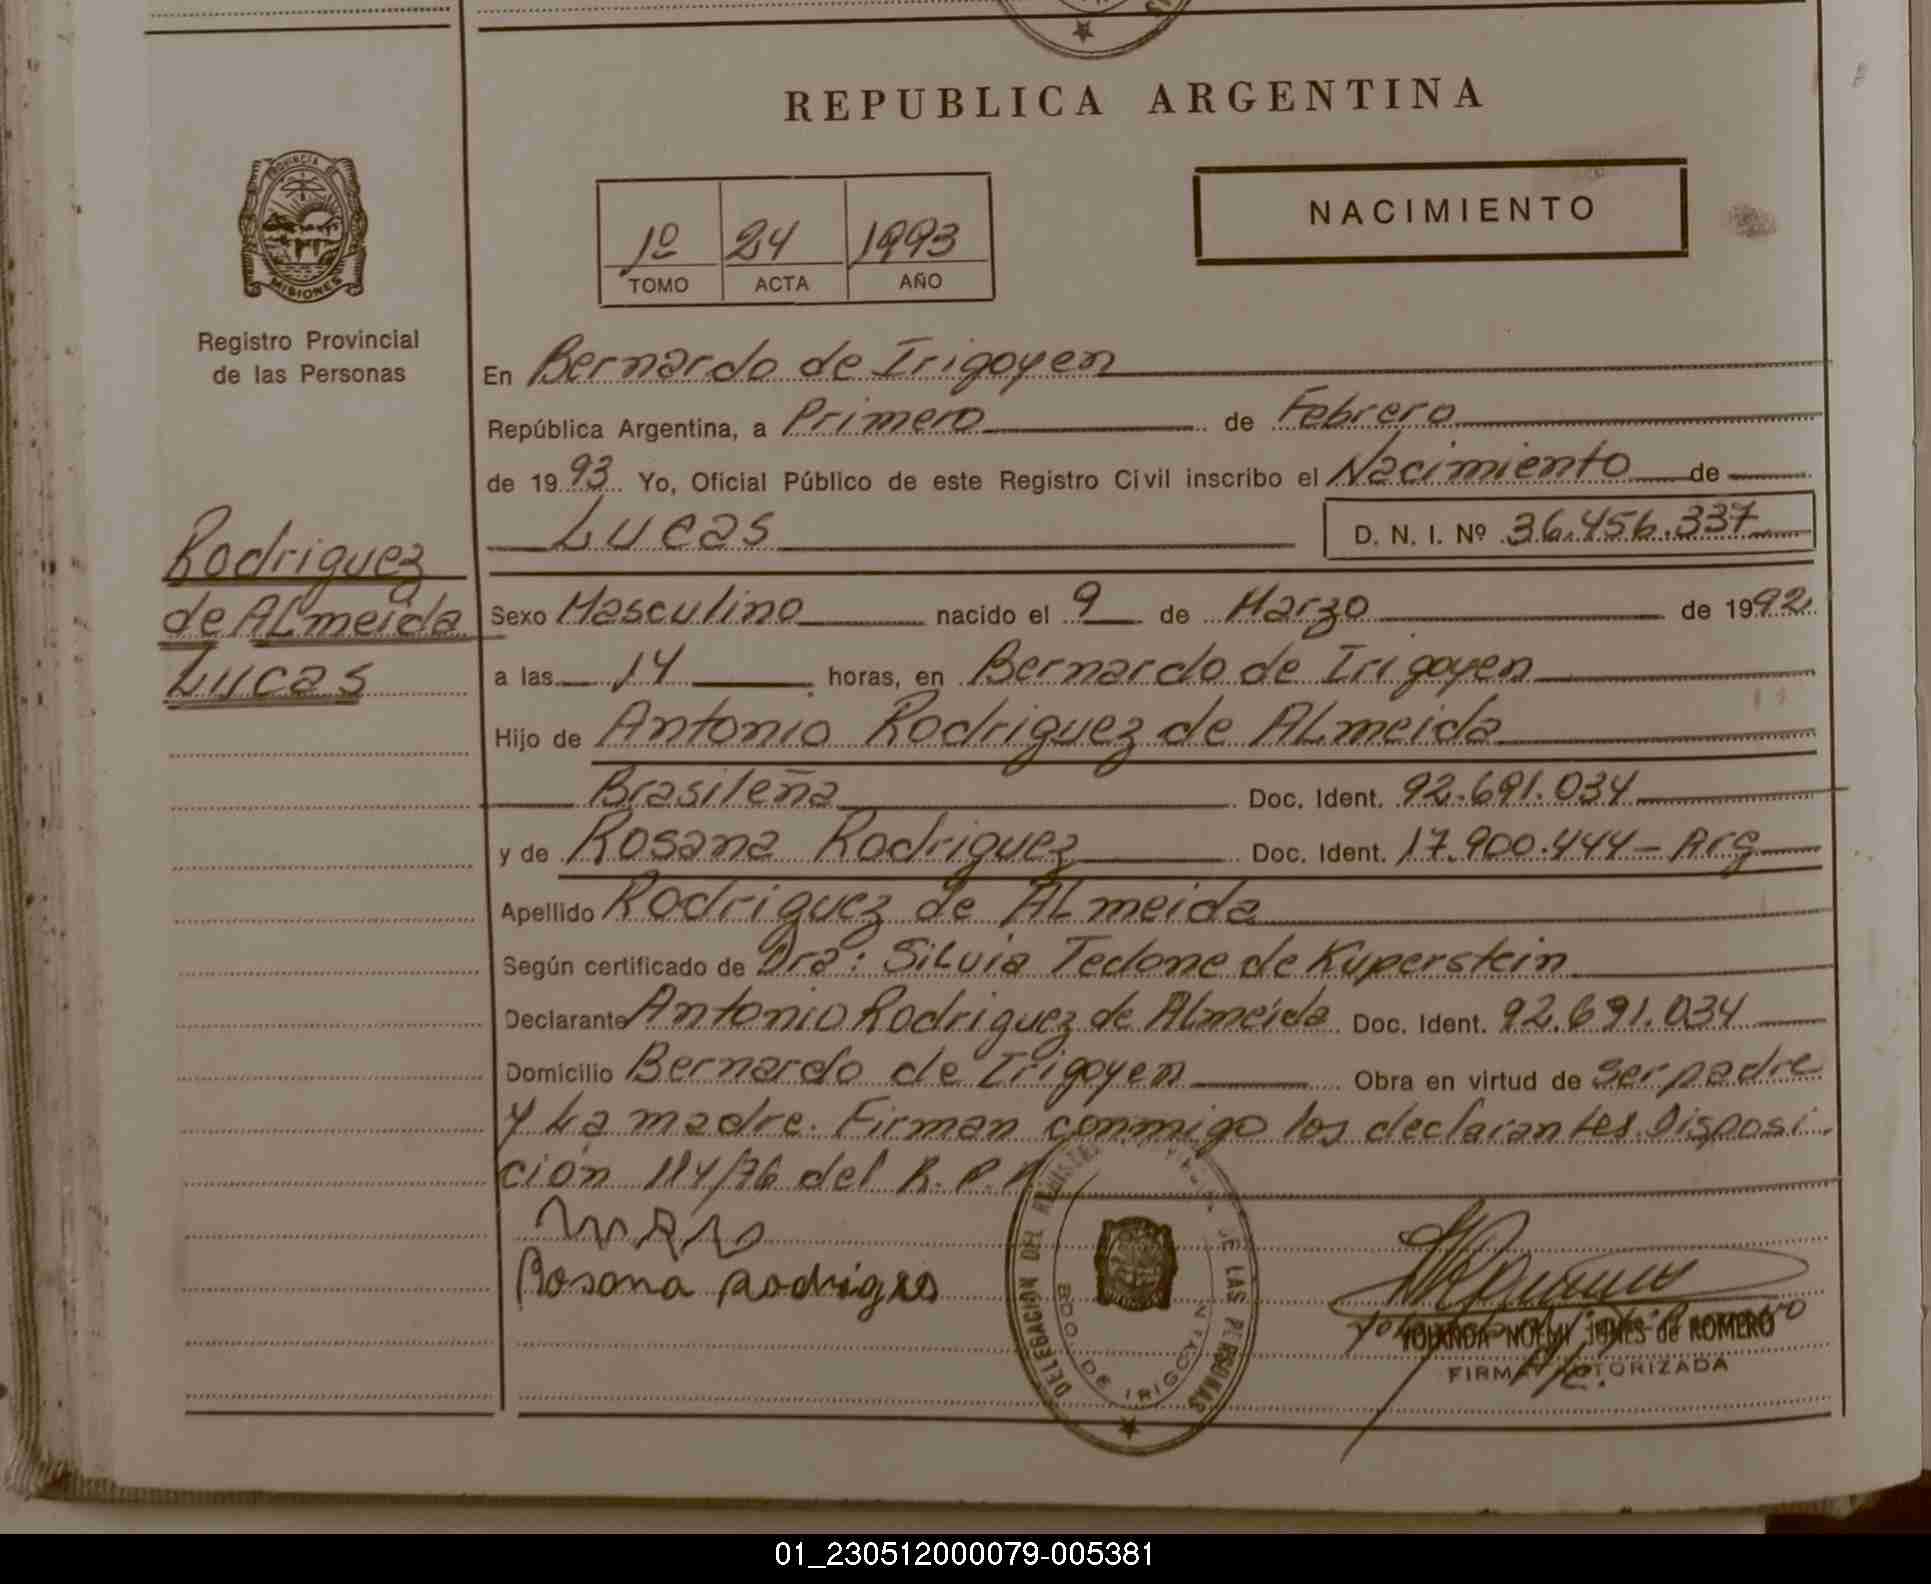 REPUBLICA ARGENTINA
PROVINCIA DE MISIONES
Registro Provincial
de las Personas
1º 24 1993
TOMO ACTA AÑO
NACIMIENTO
Rodriguez
de ALmeida
Lucas
En Bernardo de Irigoyen
República Argentina, a Primero de Febrero
de 1993 Yo, Oficial Público de este Registro Civil inscribo el Nacimiento de
Lucas D. N. I. Nº 36.456.337
Sexo Masculino nacido el 9 de Marzo de 1992
a las 14 horas, en Bernardo de Irigoyen
Hijo de Antonio Rodriguez de ALmeida
Brasileña Doc. Ident. 92.691.034
y de Rosana Rodriguez Doc. Ident. 17.900.444 - Arg
Apellido Rodriguez de ALmeida
Según certificado de Dra: Silvia Tedone de Kuperstein
Declarante Antonio Rodriguez de Almeida Doc. Ident. 92.691.034
Domicilio Bernardo de Irigoyen Obra en virtud de ser padre
y La madre. Firman conmigo los declarantes. Disposi-
ción 114/76 del R. P. P.
Rosana Rodrigues
DELEGACION DEL REGISTRO PROVINCIAL DE LAS PERSONAS
BDO. DE IRIGOYEN
YOLANDA NOEMI JONES de ROMERO
FIRMA AUTORIZADA
01_230512000079-005381